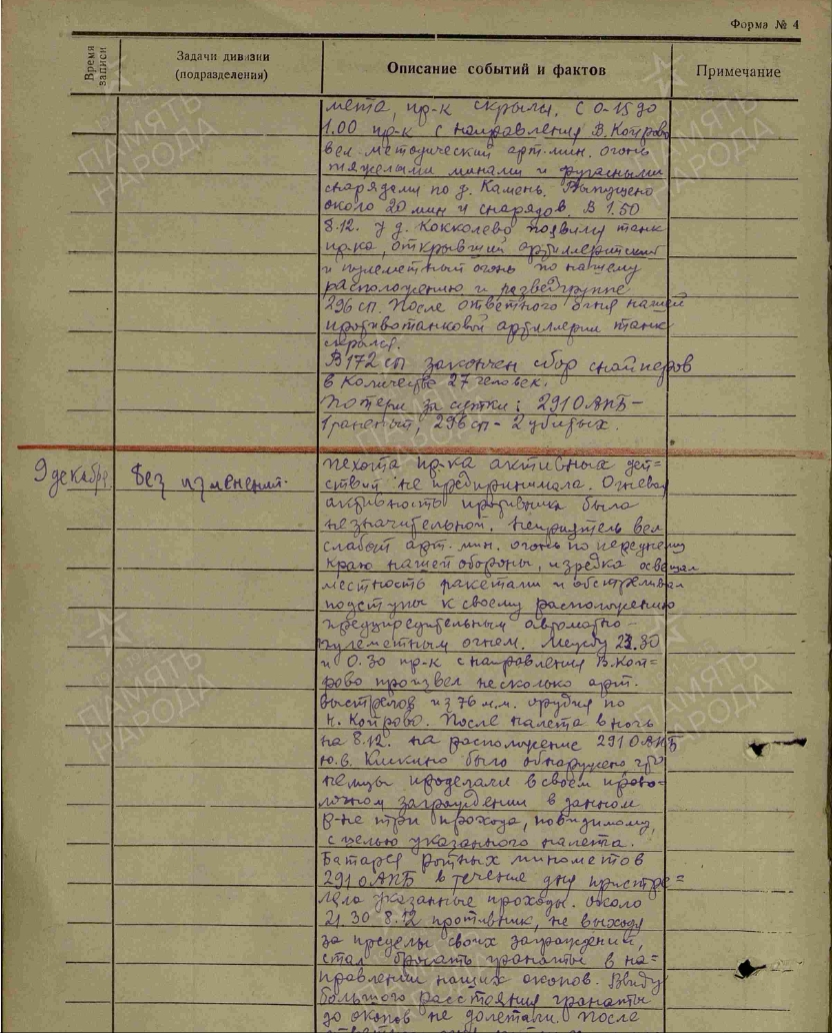 Форма № 4
Время записи
Задачи дивизии
(подразделения)
Описание событий и фактов
Примечание
мета, пр-к скрылся. С 0-15 до
1.00 пр-к с направления В. Копрово
вел методический арт. мин. огонь
тяжелыми минами и фугасными
снарядами по д. Камень. Выпущено
около 20 мин и снарядов. В 1.50
8.12. у д. Кокколево появился танк
пр-ка, открывший артиллерийский
и пулеметный огонь по нашему
расположению и разведгруппе
296 сп. После ответного огня нашей
противотанковой артиллерии танк
скрылся.
В 172 сп закончен сбор снайперов
в количестве 27 человек.
Потери за сутки: 291 ОАПБ –
1 раненый, 296 сп – 2 убитых.
9 декабря
Без изменений.
Пехота пр-ка активных дей=
ствий не предпринимала. Огневая
активность противника была
незначительной. Неприятель вел
слабый арт. мин. огонь по переднему
краю нашей обороны, изредка освещал
местность ракетами и обстреливал
подступы к своему расположению
предупредительным автоматно-
пулеметным огнем. Между 23.30
и 0.30 пр-к с направления В. Коп=
рово произвел несколько арт.
выстрелов из 76 м.м. орудия по
Н. Копрово. После налета в ночь
на 8.12. на расположение 291 ОАПБ
ю.в. Клекино было обнаружено что
немцы проделали в своем прово=
лочном заграждении в данном
р-не три прохода, повидимому,
с целью указанного налета.
Батарея ротных минометов
291 ОАПБ в течение дня пристре=
ляла указанные проходы. Около
21.30 8.12 противник, не выходя
за пределы своих заграждений,
стал бросать гранаты в на=
правлении наших окопов. Ввиду
большого расстояния гранаты
до окопов не долетали. После
ПАМЯТЬ
НАРОДА
ПАМЯТЬ
НАРОДА
ПАМЯТЬ
НАРОДА
ПАМЯТЬ
НАРОДА